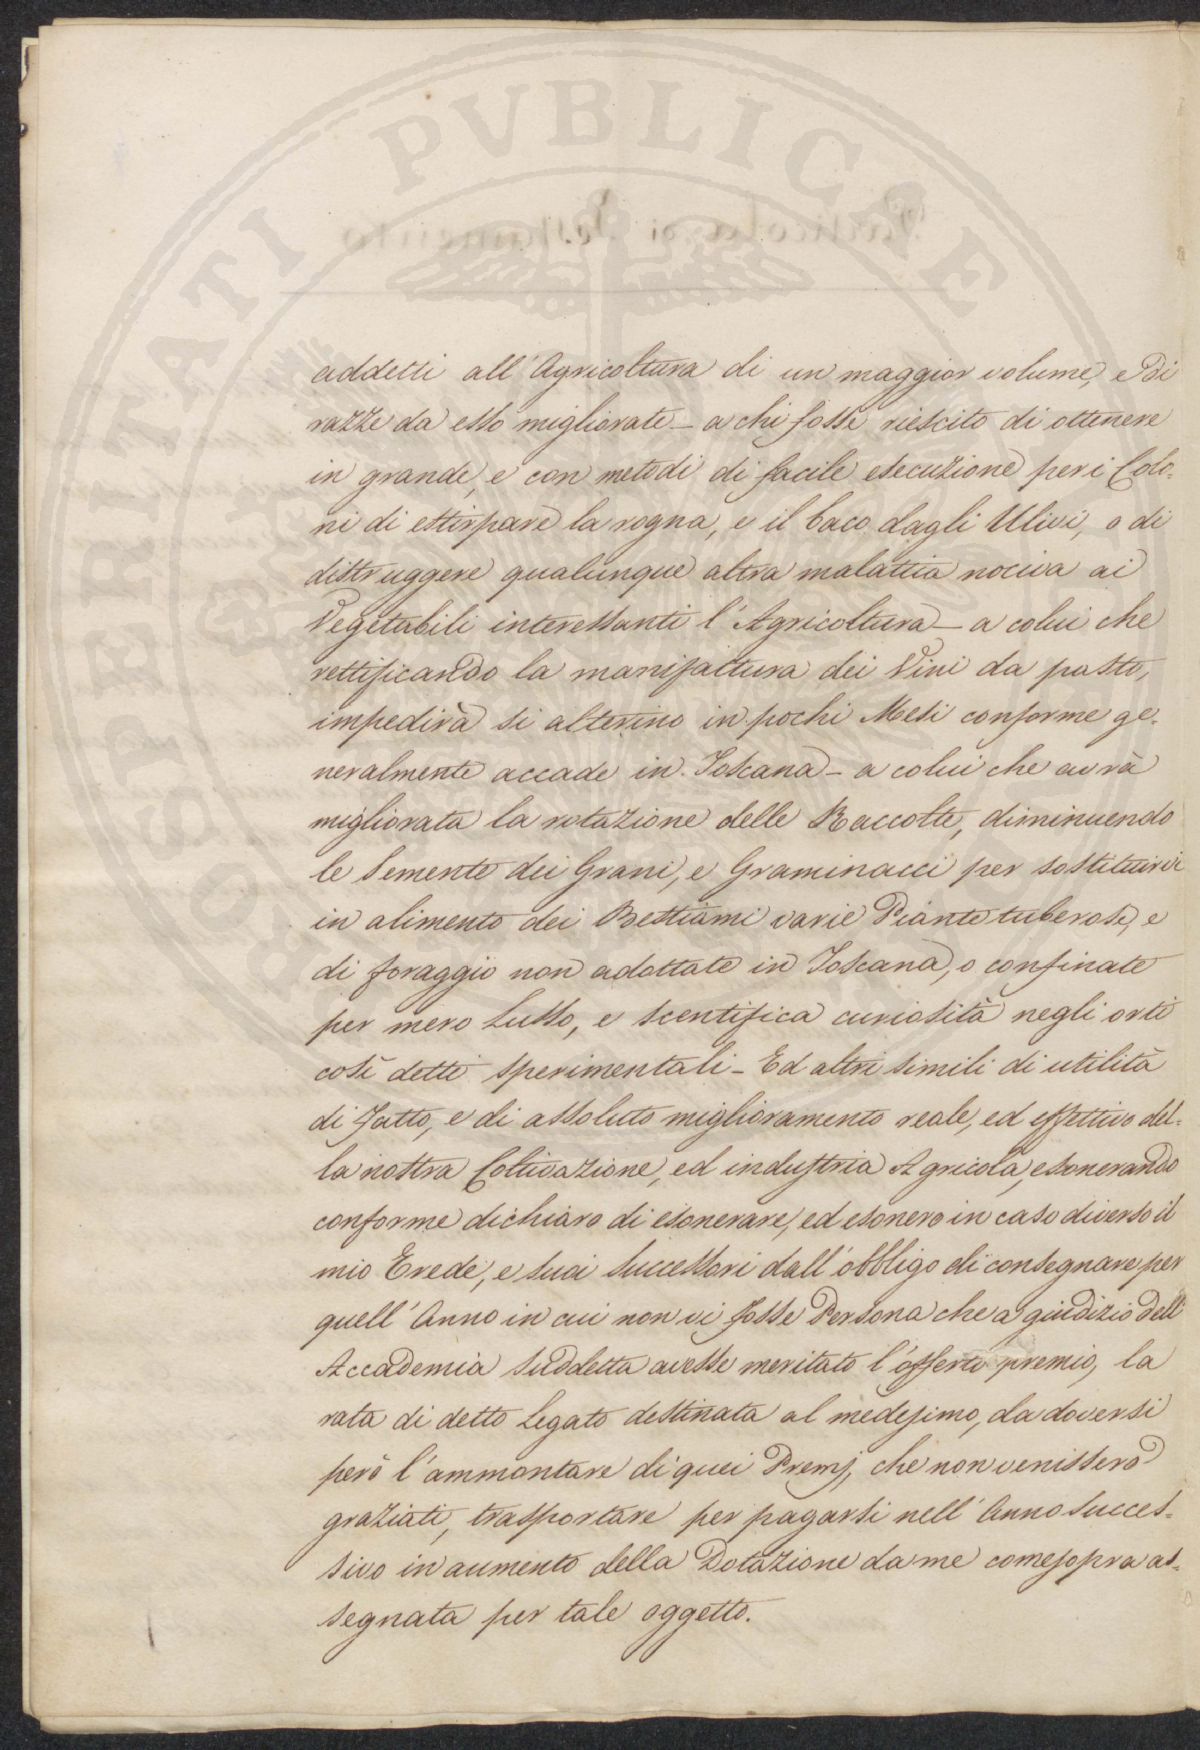 PROSPERITATI PVBLICAE
addetti all'Agricoltura di un maggior volume, e di
razze da esso migliorate _ a chi fosse riescito di ottenere
in grande, e con metodi di facile esecuzione per i Colo=
ni di estirpare la rogna, e il baco dagli Ulivi, o di
distruggere qualunque altra malattia nociva ai
Vegetabili interessanti l'Agricoltura _ a colui che
rettificando la manifattura dei Vini da pasto,
impedirà si alterino in pochi Mesi conforme ge=
neralmente accade in Toscana _ a colui che avrà
migliorata la rotazione delle Raccolte, diminuendo
le Semente dei Grani, e Graminacci per sostituirvi
in alimento dei Bestiami varie Piante tuberose, e
di foraggio non adottate in Toscana, o confinate
per mero Lusso, e scentifica curiosità negli orti
così detti sperimentali _ Ed altri simili di utilità
di Fatto, e di assoluto miglioramento reale, ed effettivo del=
la nostra Coltivazione, ed industria Agricola, esonerando
conforme dichiaro di esonerare, ed esonero in caso diverso il
mio Erede, e suoi Successori dall'obbligo di consegnare per
quell'Anno in cui non vi fosse Persona che a giudizio dell'
Accademia suddetta avesse meritato l'offerto premio, la
rata di detto Legato destinata al medesimo, da doversi
però l'ammontare di quei Premj, che non venissero
graziati, trasportare per pagarsi nell'Anno succes=
sivo in aumento della Dotazione da me come sopra as=
segnata per tale oggetto.